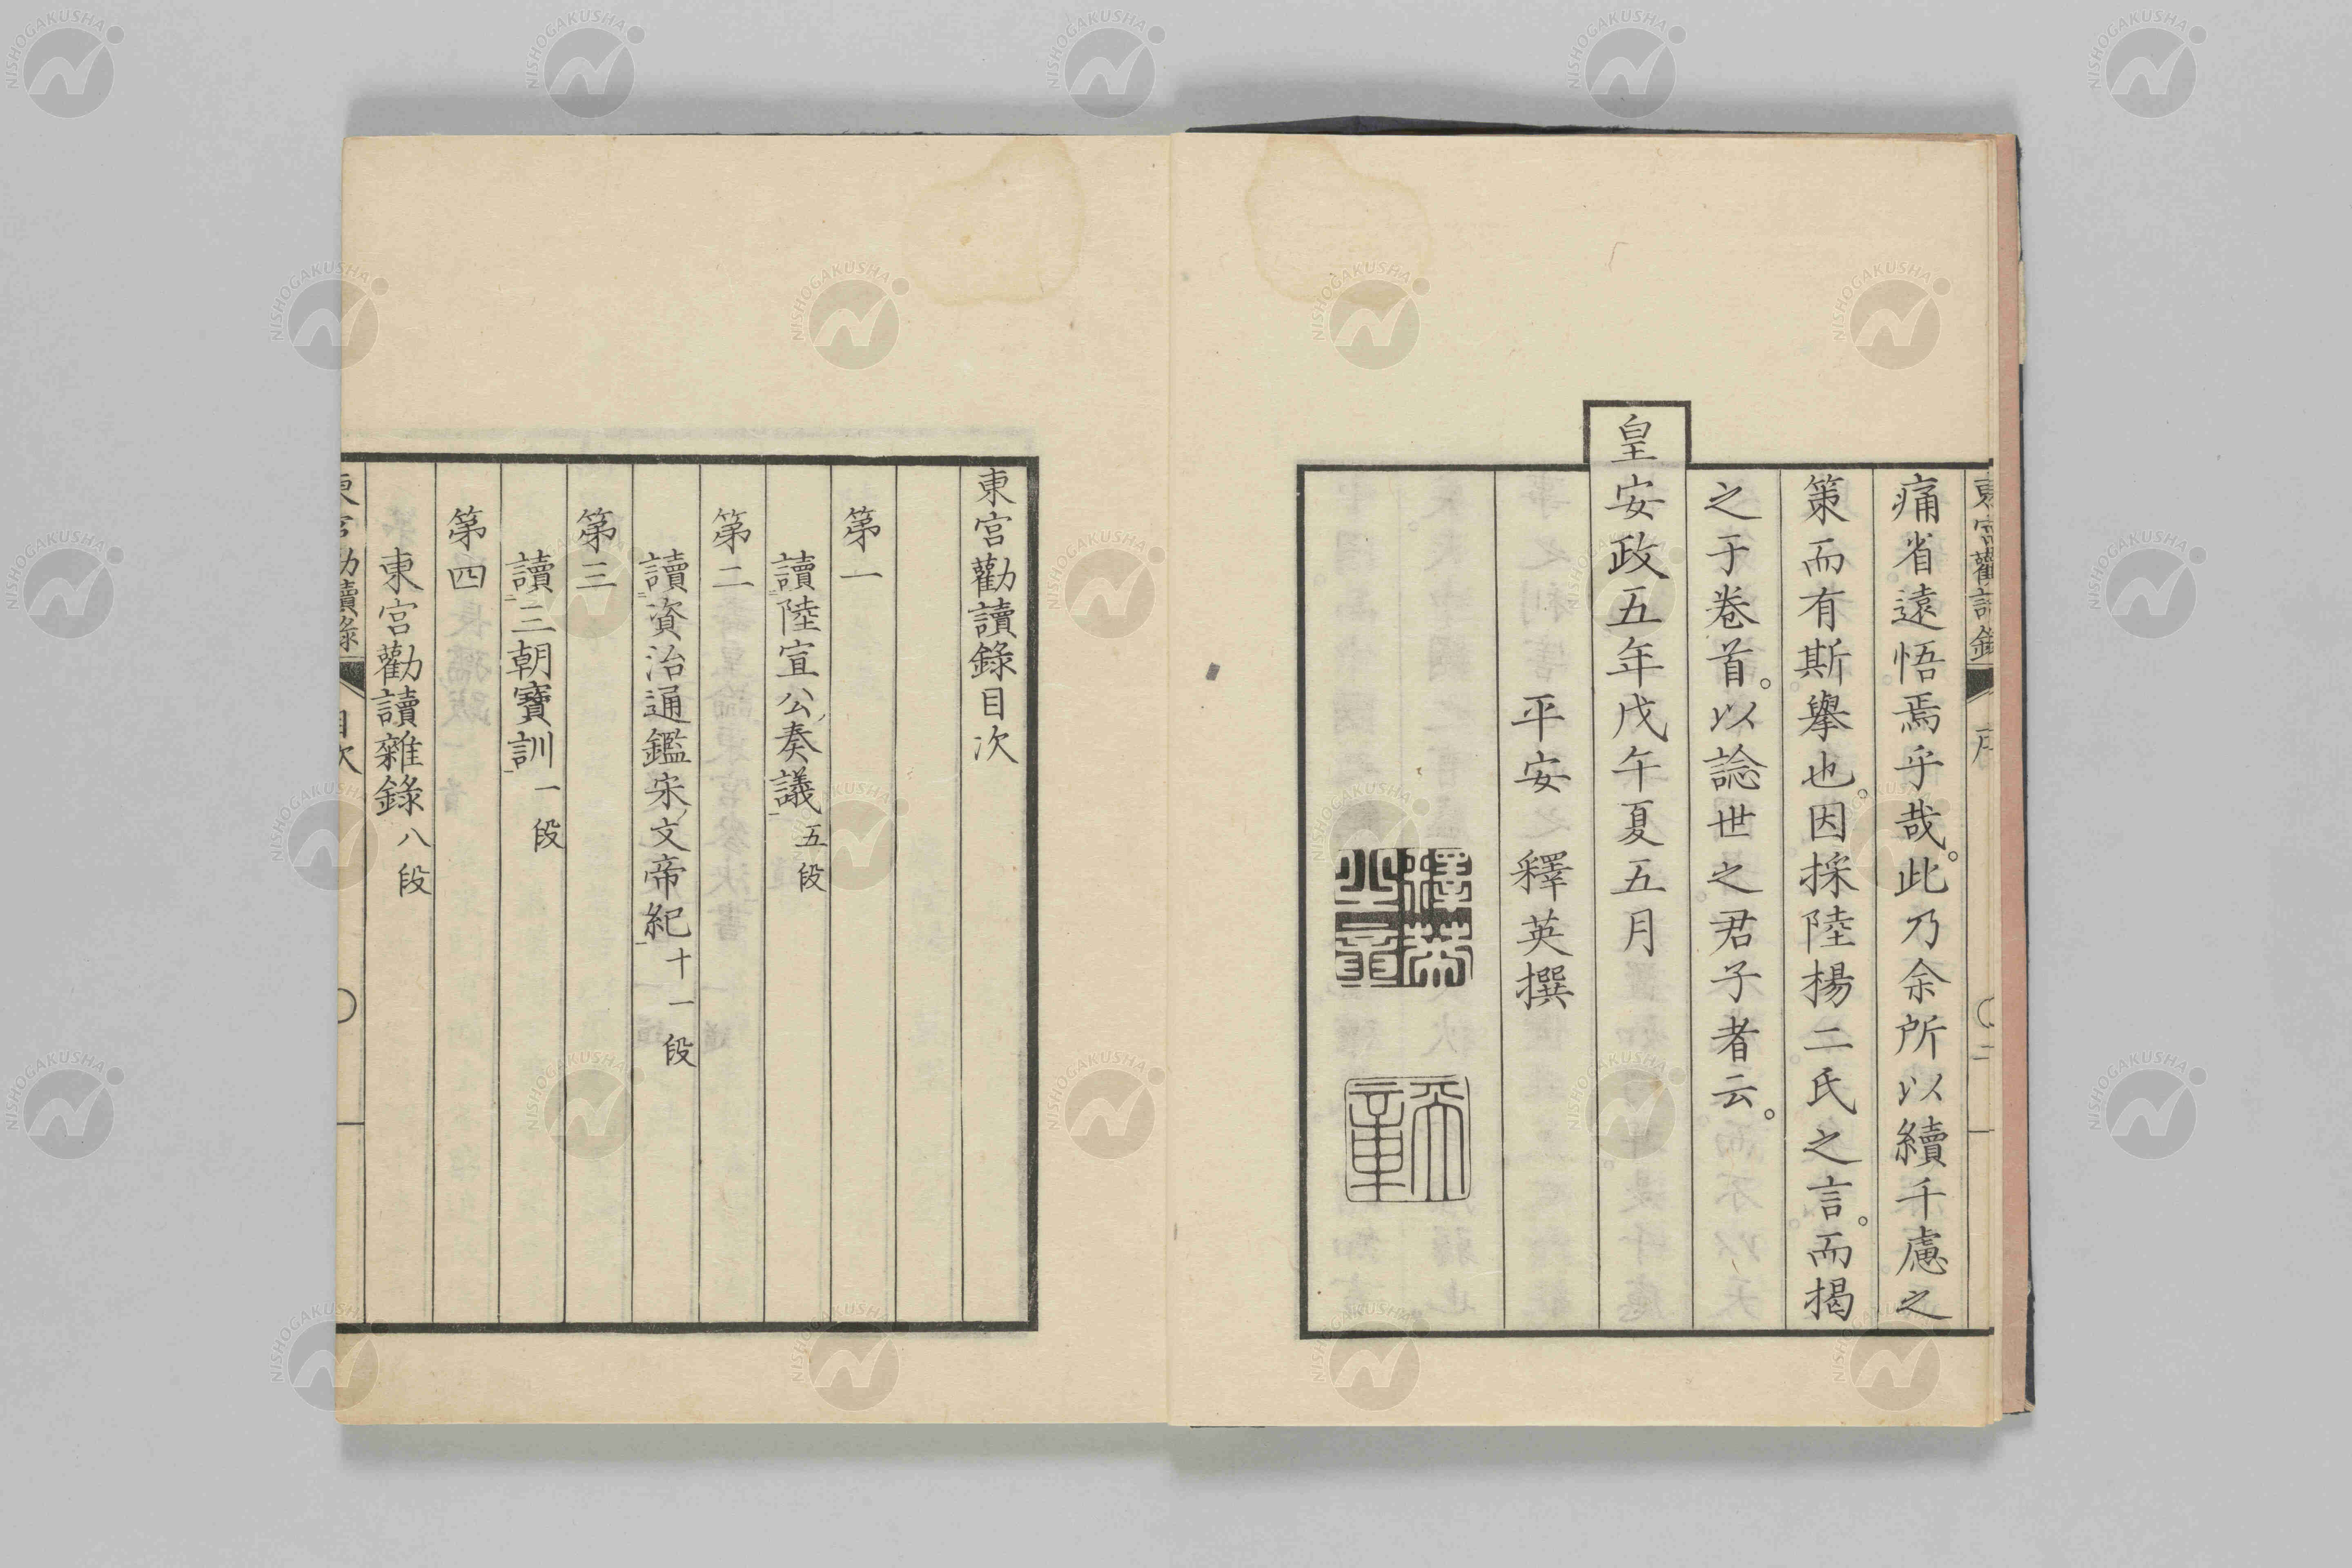 痛省遠悟焉乎哉。此乃余所以續千慮之
策而有斯擧也。因採陸楊二氏之言。而揭
之于卷首。以諗世之君子者云。
皇安政五年戊午夏五月
平安 釋英撰
東宮勸讀錄目次
第一
讀陸宣公奏議 五段
第二
讀資治通鑑宋文帝紀 十一段
第三
讀三朝寶訓 一段
第四
東宮勸讀雜錄 八段
NISHOGAKUSHA